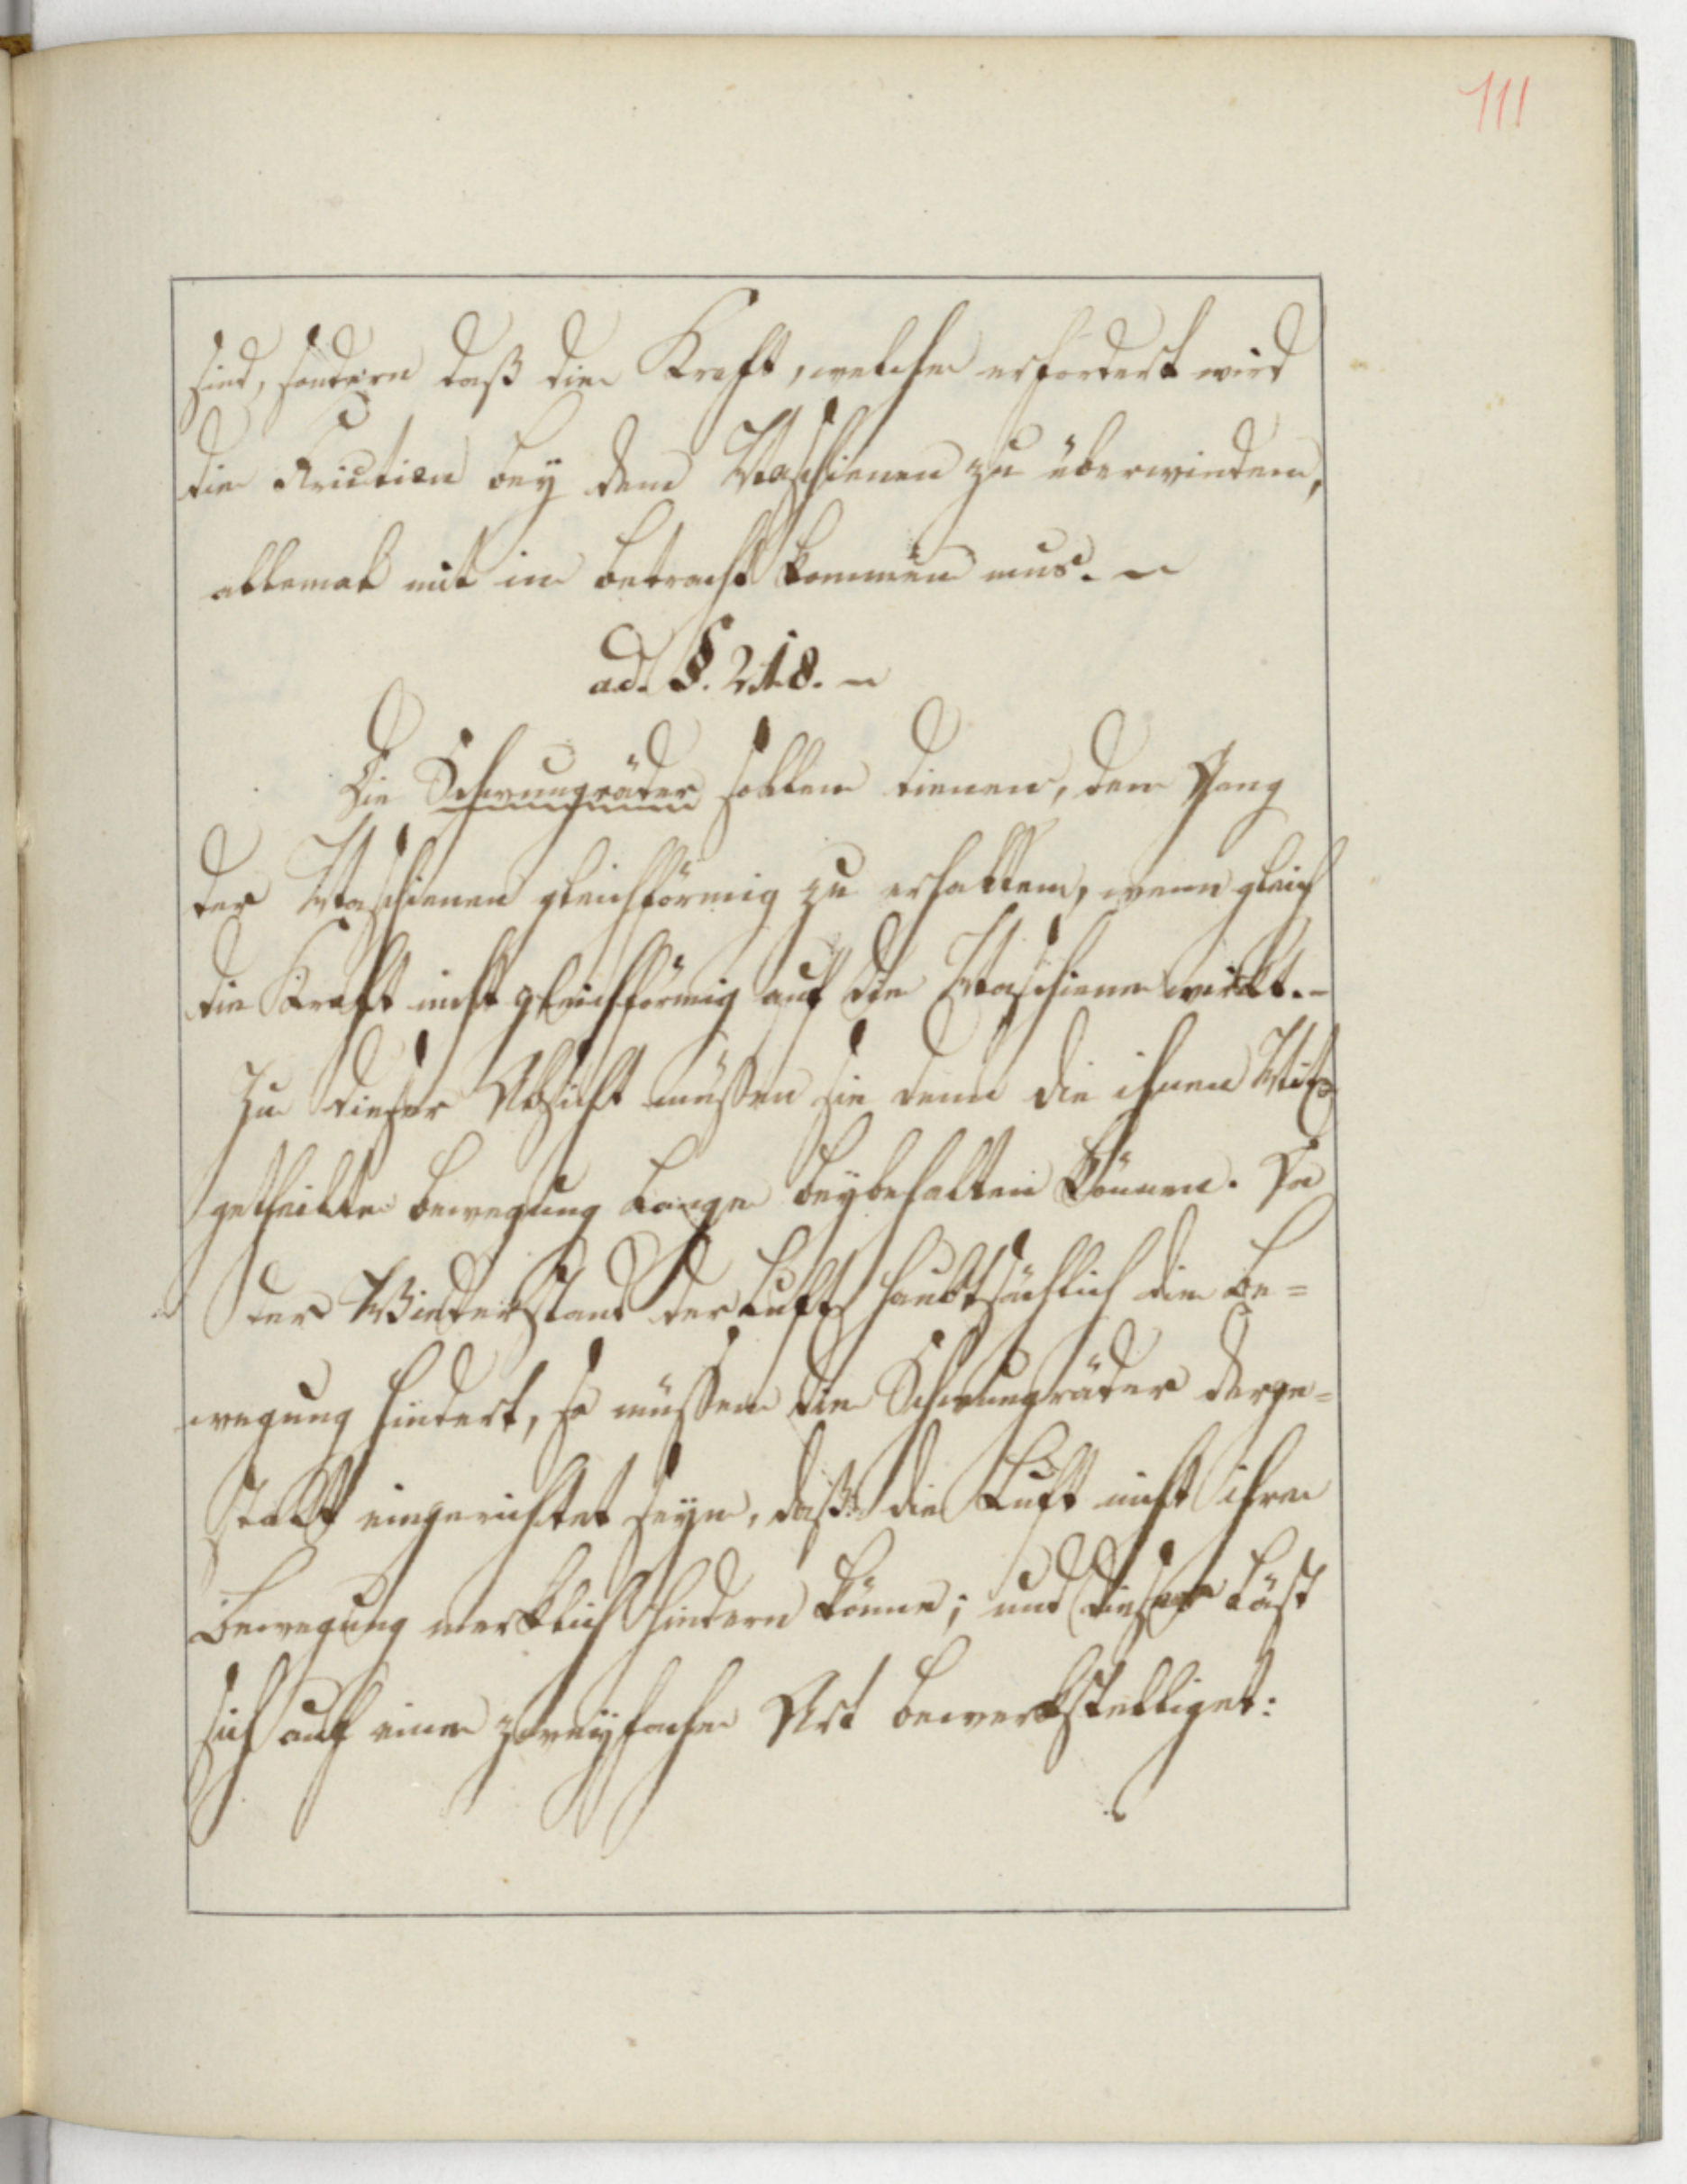 111
sind, sondern daß die Kraft, welche erfordert wird
die Friction bey den Maschienen zu überwinden,
allemal mit in betracht kommen mus.
ad. §. 218.
Die Schwungräder sollen dienen, den Gang
der Maschienen gleichförmig zu erhalten, wenn gleich
die Kraft nicht gleichförmig auf die Maschiene wirkt.-
Zu dieser Absicht müßen sie denn die ihnen Mit
getheilte bewegung lange beybehalten können. Da
der Widerstand der Luft haubtsächlich die be=
wegung hindert, so müssen die Schwungräder derge=
stalt eingerichtet seyn, daß die Luft nicht ihre
bewegung merklich hindern könne; und dieses läst
sich auf eine zweyfache Art bewerkstelliget: